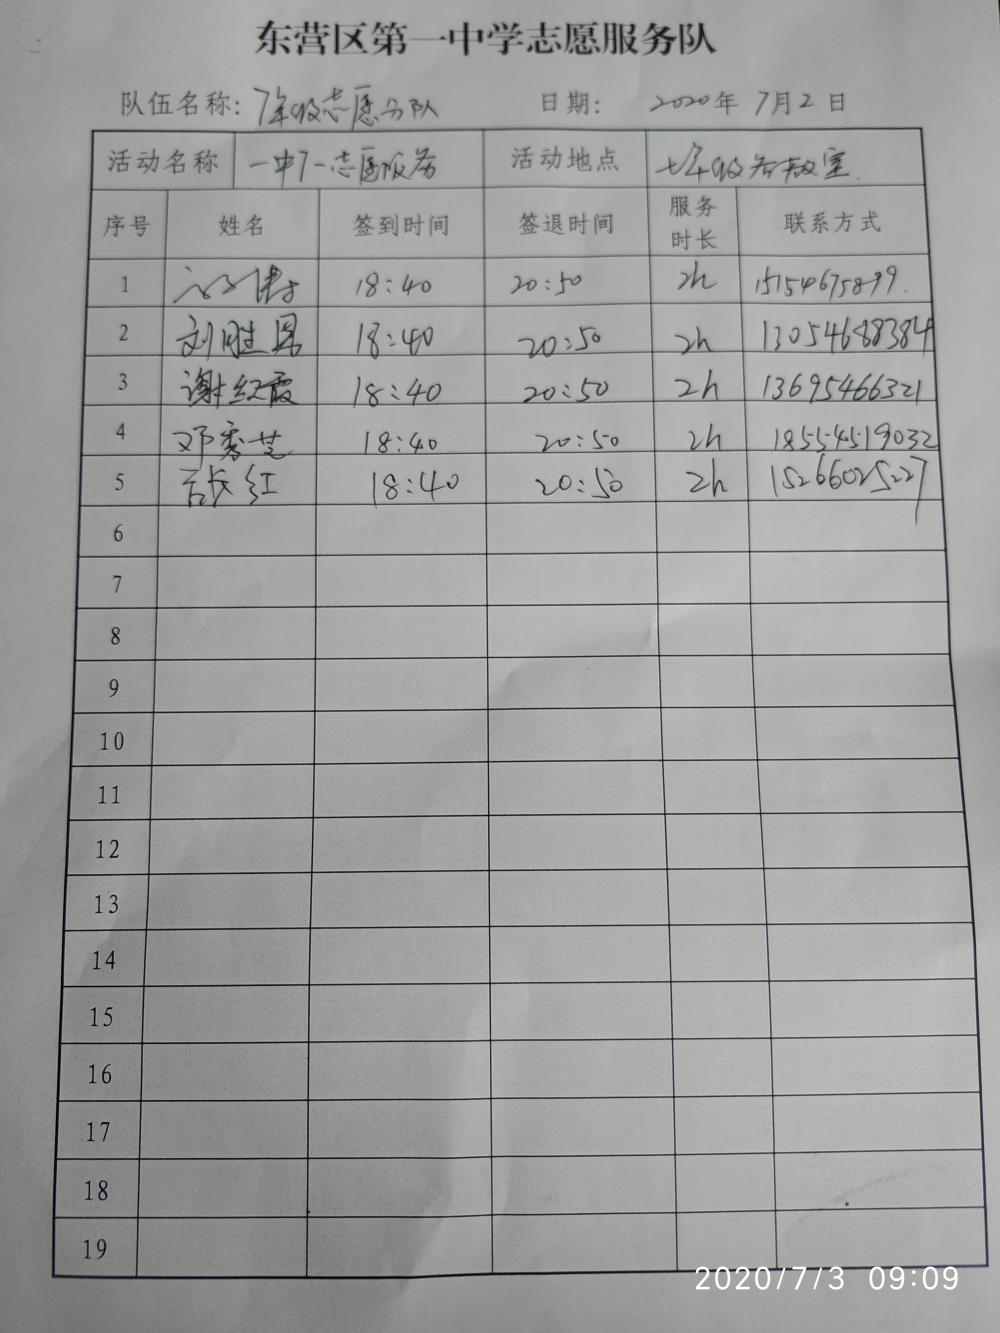 东营区第一中学志愿服务队
队伍名称: 7年级志愿分队 日期: 2020年7月2日
活动名称 一中7一志愿服务 活动地点 七年级各教室.
序号 姓名 签到时间 签退时间 服务时长 联系方式
1 18:40 20:50 2h 15154675899.
2 刘胜恩 18:40 20:50 2h 13054688384
3 谢红霞 18:40 20:50 2h 13695466321
4 邓秀芝 18:40 20:50 2h 18554519032
5 张红 18:40 20:50 2h 15266025227
6
7
8
9
10
11
12
13
14
15
16
17
18
19
2020/7/3 09:09